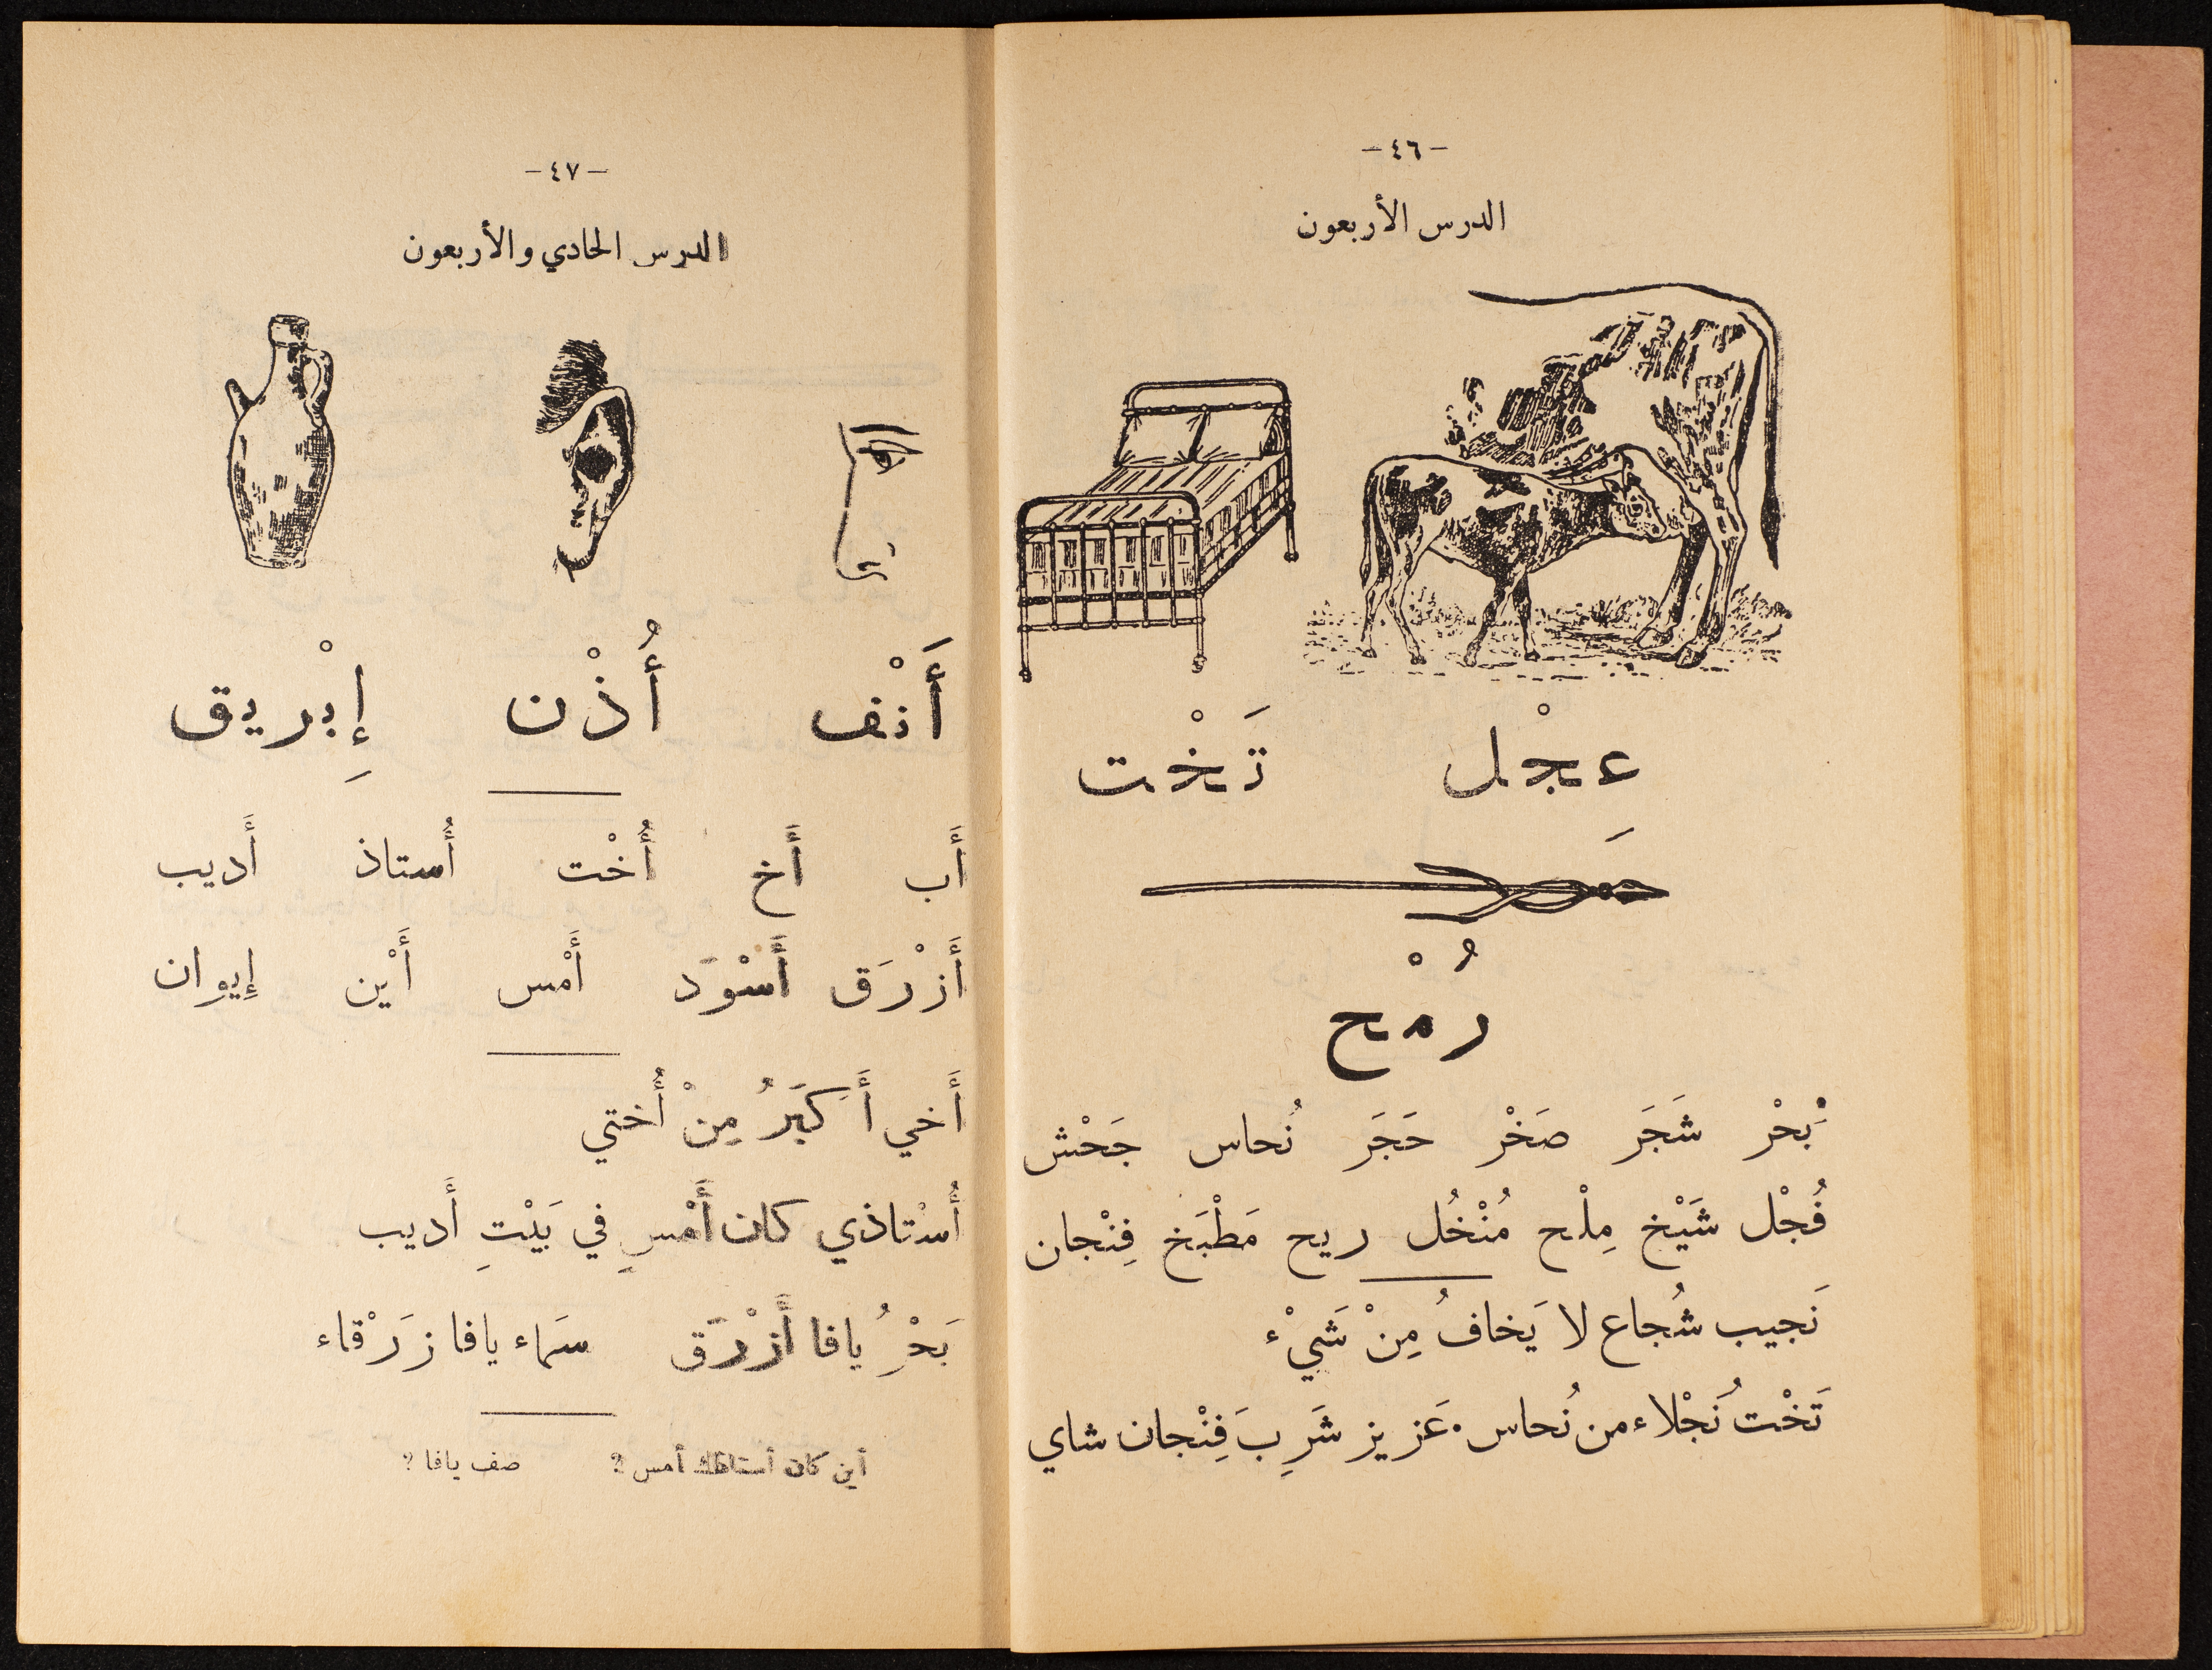 -٤٦-
الدرس الأربعون
عِجْل تَخْت
رُمْح
بَحْر شَجَر صَخْر حَجَر نُحاس جَحْش
فُجْل شَيْخ مِلْح مُنْخُل ريح مَطْبَخ فِنْجان
نَجيب شُجاع لا يَخافُ مِنْ شَيْء
تَخْتُ نَجْلاء من نُحاس. عَزيز شَرِبَ فِنْجان شاي
-٤٧-
الدرس الحادي والأربعون
أَنْف أُذْن إِبْريق
أَب أَخ أُخْت أُستاذ أَديب
أَزْرَق أَسْوَد أَمْس أَيْن إِيوان
أَخي أَكبَرُ مِنْ أُختي
أُسْتاذي كان أَمْسِ في بَيْتِ أَديب
بَحْرُ يافا أَزْرَق سَماء يافا زَرْقاء
أين كان أستاذك أمس ؟ صف يافا ؟